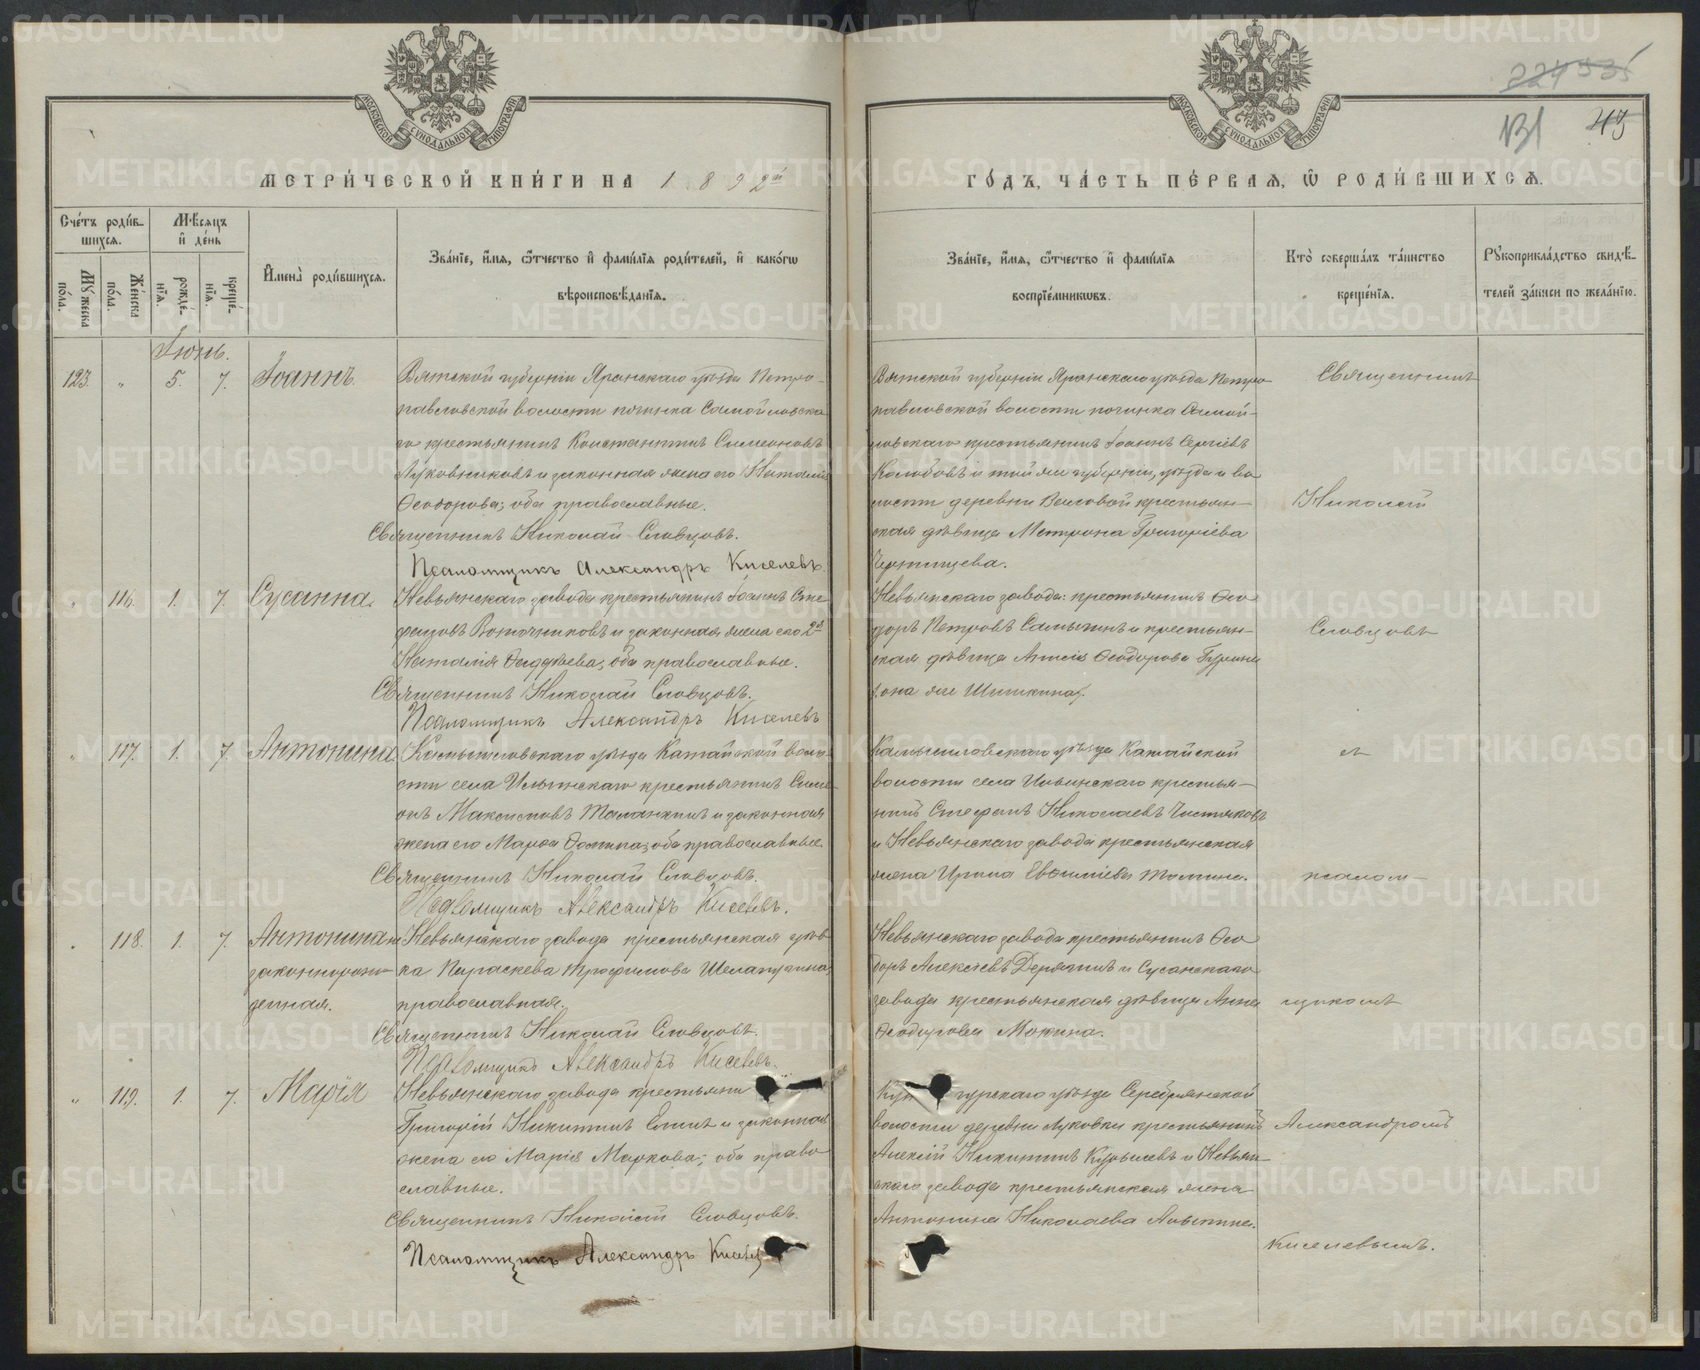 МЕТРИ́ЧЕСКОЙ КНИ́ГИ НА 1892й
ГО́ДЪ, ЧА́СТЬ ПЕ́РВАЯ, Ѡ РОДИ́ВШИХСЯ.
131
Сче́тъ роди́в-
шихся.
Мѣ́сяцъ
и де́нь
Му́жеска
по́ла.
Же́нска
по́ла.
рожде́-
нїя.
креще́-
нїя.
И́мена̀ роди́вшихся.
Зва́нїе, и́мя, ѻ́тчество и фами́лїя роди́телей, и како́гѡ
вѣроисповѣ́данїя.
Зва́нїе, и́мя, ѻ́тчество и фами́лїя
воспрїе́мникѡвъ.
Кто̀ соверша́лъ та́инство
креще́нїя.
Рꙋкоприкла́дство свидѣ́-
телей за́писи по жела́нїю.
Іюнь.
123. " 5. 7. Іоаннъ.
Вятской губерніи Яранскаго уѣзда Петро-
павловской волости починка Самойловска-
го крестьянинъ Константинъ Симеоновъ
Луковниковъ и законная жена его Наталія
Ѳеодорова; оба православные.
Священникъ Николай Словцовъ.
Псаломщикъ Александръ Киселевъ.
Вятской губерніи Яранскаго уѣзда Петро-
павловской волости починка Самой-
ловскаго крестьянинъ Іоаннъ Сергіевъ
Колобовъ и той же губерніи, уѣзда и во-
лости деревни крестьян-
ская дѣвица Матрона Григоріева
Священникъ
Николай
" 116. 1. 7. Сусанна.
Невьянскаго завода крестьянинъ Іоаннъ Сте-
фановъ и законная жена его 2я
Наталія Ѳаддѣева; оба православные.
Священникъ Николай Словцовъ.
Псаломщикъ Александръ Киселевъ
Невьянскаго завода крестьянинъ Ѳео-
доръ Петровъ и крестьян-
ская дѣвица Ѳеодорова
(она же Шишкина).
Словцовъ
" 117. 1. 7. Антонина.
Камышловскаго уѣзда Катайской воло-
сти села Ильинскаго крестьянинъ Симе-
онъ Максимовъ Таланкинъ и законная
жена его Марѳа Ѳомина; оба православные.
Священникъ Николай Словцовъ.
Псаломщикъ Александръ Киселевъ.
Камышловскаго уѣзда Катайской
волости села Ильинскаго крестья-
нинъ Стефанъ Николаевъ Чистяковъ
и Невьянскаго завода крестьянская
жена Ирина Евѳиміева
съ
псалом-
" 118. 1. 7. Антонина не-
законнорож-
денная.
Невьянскаго завода крестьянская дѣв-
ка Параскева Трофимова Шелапугина,
православная.
Священникъ Николай Словцовъ.
Псаломщикъ Александръ Киселевъ.
Невьянскаго завода крестьянинъ Ѳео-
доръ Алексѣевъ Дерягинъ и Сусанскаго
завода крестьянская дѣвица Анна
Ѳеодорова Мокина.
щикомъ
" 119. 1. 7. Марія
Невьянскаго завода крестьяни
Григорій Никитинъ и законная
жена его Марія Маркова; оба право-
славные.
Священникъ Николай Словцовъ.
Псаломщикъ Александръ Киселев
Кун гурскаго уѣзда Серебрянской
волости деревни Луковки крестьянинъ
Алексій Никитинъ и Невьян-
скаго завода крестьянская жена
Антонина Николаева
Александромъ
Киселевымъ.